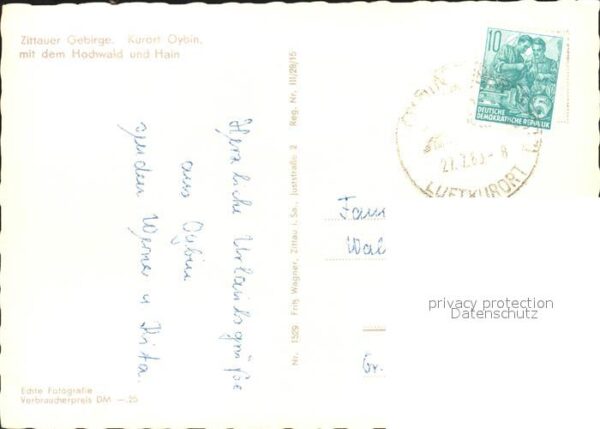 Zittauer Gebirge. Kurort Oybin.
mit dem Hochwald und Hain
Herzliche Urlaubsgrüße
aus Oybin
senden Werner u. Rita.
Nr. 1529 Fritz Wagner, Zittau i. Sa., Juststraße 2 Reg. Nr. III/28/15
10
5
DEUTSCHE
DEMOKRATISCHE REPUBLIK
LUFTKURORT
Fam
Wal
Gr.
privacy protection
Datenschutz
Echte Fotografie
Verbraucherpreis DM —.25